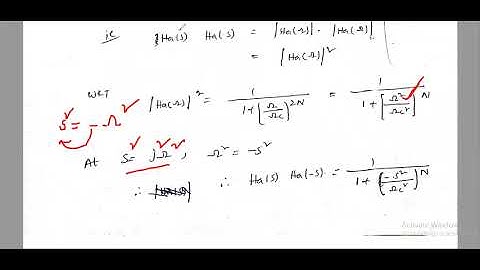 ie Ha(s) Ha(s) = |Ha(Ω)| · |Ha(Ω)|
= |Ha(Ω)|²
WKT |Ha(Ω)|² = 1 / (1+(Ω/Ωc)^2N) = 1 / (1+[Ω²/Ωc²]^N)
s² = -Ω²
At s= jΩ, Ω² = -s²
∴ ∴ Ha(s) Ha(-s) = 1 / (1+(-s²/Ωc²)^N)
Activate Windows